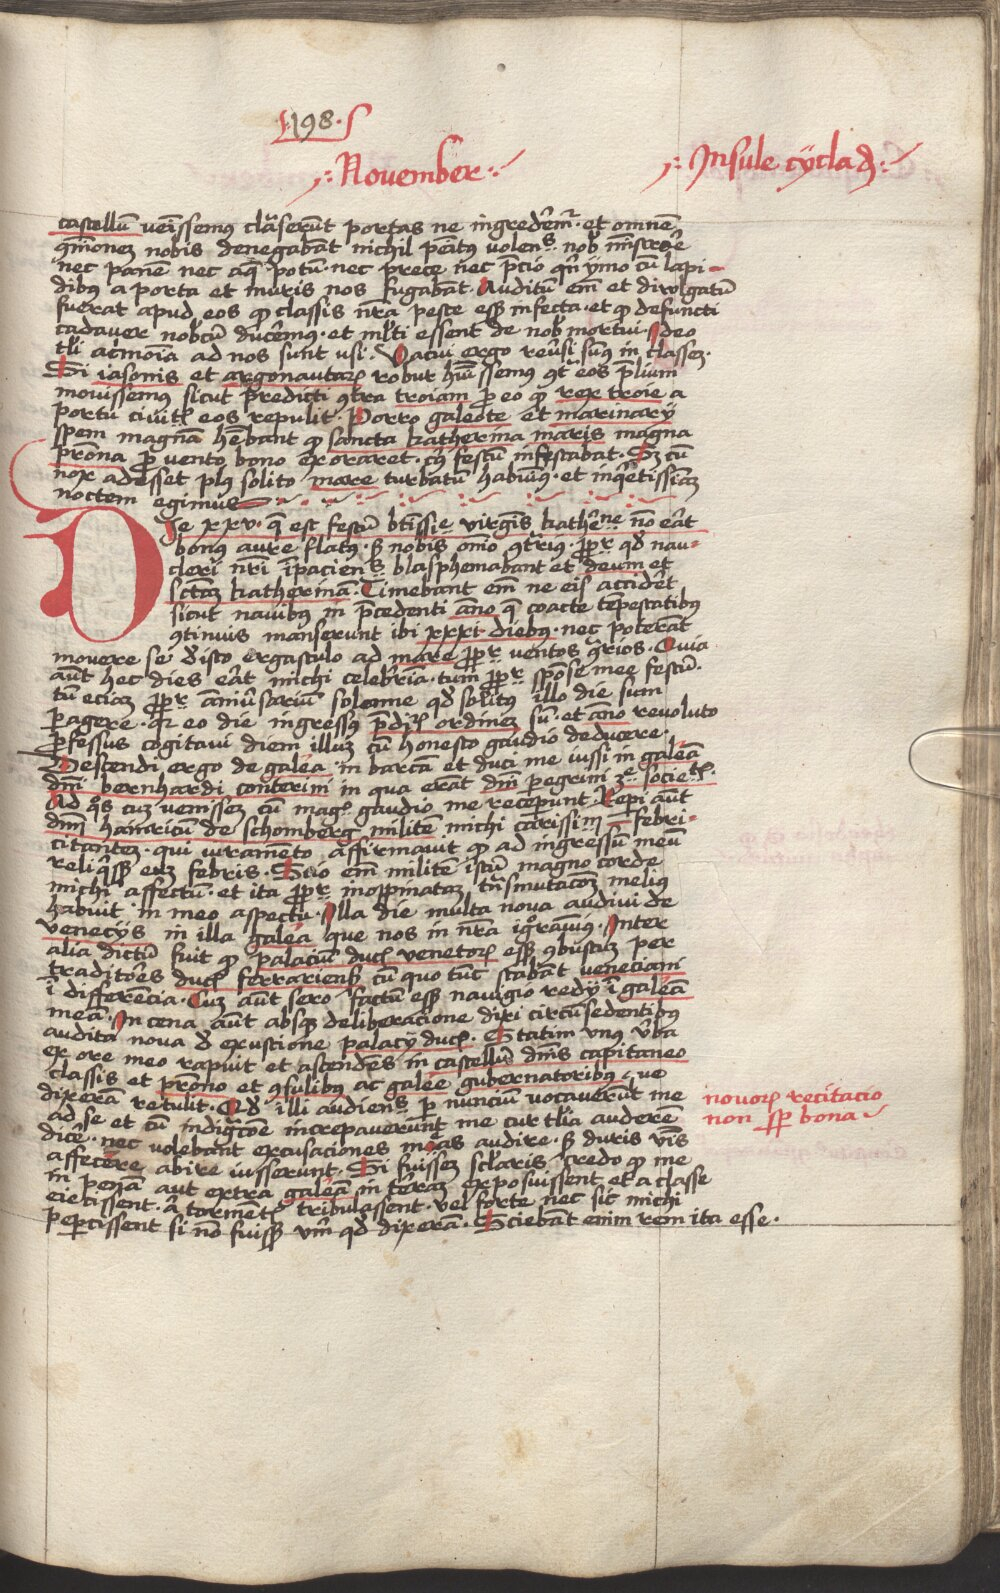 198.
November
Insule cyclad
castellū venissemus clauserūt portas ne ingrederemr. et omnē
nobis denegabāt nichil penitus volens nob ministrare
nec panē nec aquā potū. nec prece nec precio quin ymo cū lapi-
dibꝰ a porta et muris nos fugabāt. Auditū em̄ et divulgatū
fuerat apud eos ꝙ classis nr̄a peste esse infecta. et ꝙ defuncti
cadaver nobcū ducēmꝰ. et multi essent de nob mortui. Ideo
tali acrimoīa ad nos sunt usi. Vacui ergo reūsi sumꝰ in classem.
Si iasonis et argonautarꝝ robur huissemus ꝯtra eos prelium
movissemus sicut predicti ꝯtra troiam pro eo ꝙ rex troie a
portu civitatis eos repulit. Porro galeote et marinarij
spem magnā hēbant ꝙ sancta katherina maris magna
prōna pro vento bono exoraret. cuius festū instabat. Sꝫ cū
nox adesset plus solito mare turbatū habuimꝰ. et inquietissimam
noctem egimus
Die xxv. que est festū btissie virginis katherine nō erat
bonus aure flatus. sed nobis omnino ꝯtrarius. propter quod nau-
cleri nr̄i īpaciens blasphemabant et deum et
sctam katherinā. Timebant em̄ ne eis accidet
sicut navibus in precedenti ano que coacte tempestatibus
ꝯtinuis manserunt ibi xxxi diebus. nec poterāt
movere se de isto ergastulo ad mare propter ventos ꝯtrios. Quia
aut hec dies erat michi celebria. tum propter sponse mee festū.
tū eciam propter aniūsariū solenne quod solitus illo die sum
peragere. quia eo die ingressus predicatorum ordinem sum. et ano revoluto
professus cogitavi diem illum cū honesto gaudio deducere.
Descendi ergo de galea in barcā et duci me iussi in galeā
dni bernhardi conterini in qua erant dni peregrini 3e societatis.
Ad quos cum venissem cū magno gaudio me receperunt. Reperi aut
dnm hainricum de schomberg militē michi carissim febri-
citantem. qui iuramento affirmavit ꝙ ad ingressū meū
reliquisset eum febris. Scio em̄ militē istū magno corde
michi affectū. et ita propter inopinatam transmutacōem melius
habuit in meo aspectu. Illa die multa nova audivi de
venecijs in illa galea que nos in nr̄a ignoravimus. Inter
alia dictū fuit ꝙ palaciū ducis venetorꝝ esset ꝯbustum per
traditōes ducis ferrariensis cū quo tūc stabāt veneciani
ī differencia. Cum aut sero factū esset navigio redij ī galeā
meā. In cena aut absque deliberacione dixi circūsedentibus
audita nova de exustione palacij ducis. Statim unus verba
ex ore meo rapuit et ascendēs in castellū dnis capitaneo
classis et prōno et ꝯsulibus ac galee gubernatoribus. ut
dixeram retulit. Qd illi audiens per nuncium vocaverūt me
ad se et cū indignacōe increpaverunt me cur talia auderē
dice. nec volebant excusaciones meas audire. sed duris verbis
affecere abire iusserunt. Si fuissem secularis credo ꝙ me
in penā aut extra galeā in terram exposuissent et a classe
eiecissent. aut tormetis tribulassent. vel forte nec sic michi
pepercissent si nō fuisset verum quod dixeram. Sciebāt enim rem ita esse.
novorꝝ recitacio
non semper bona